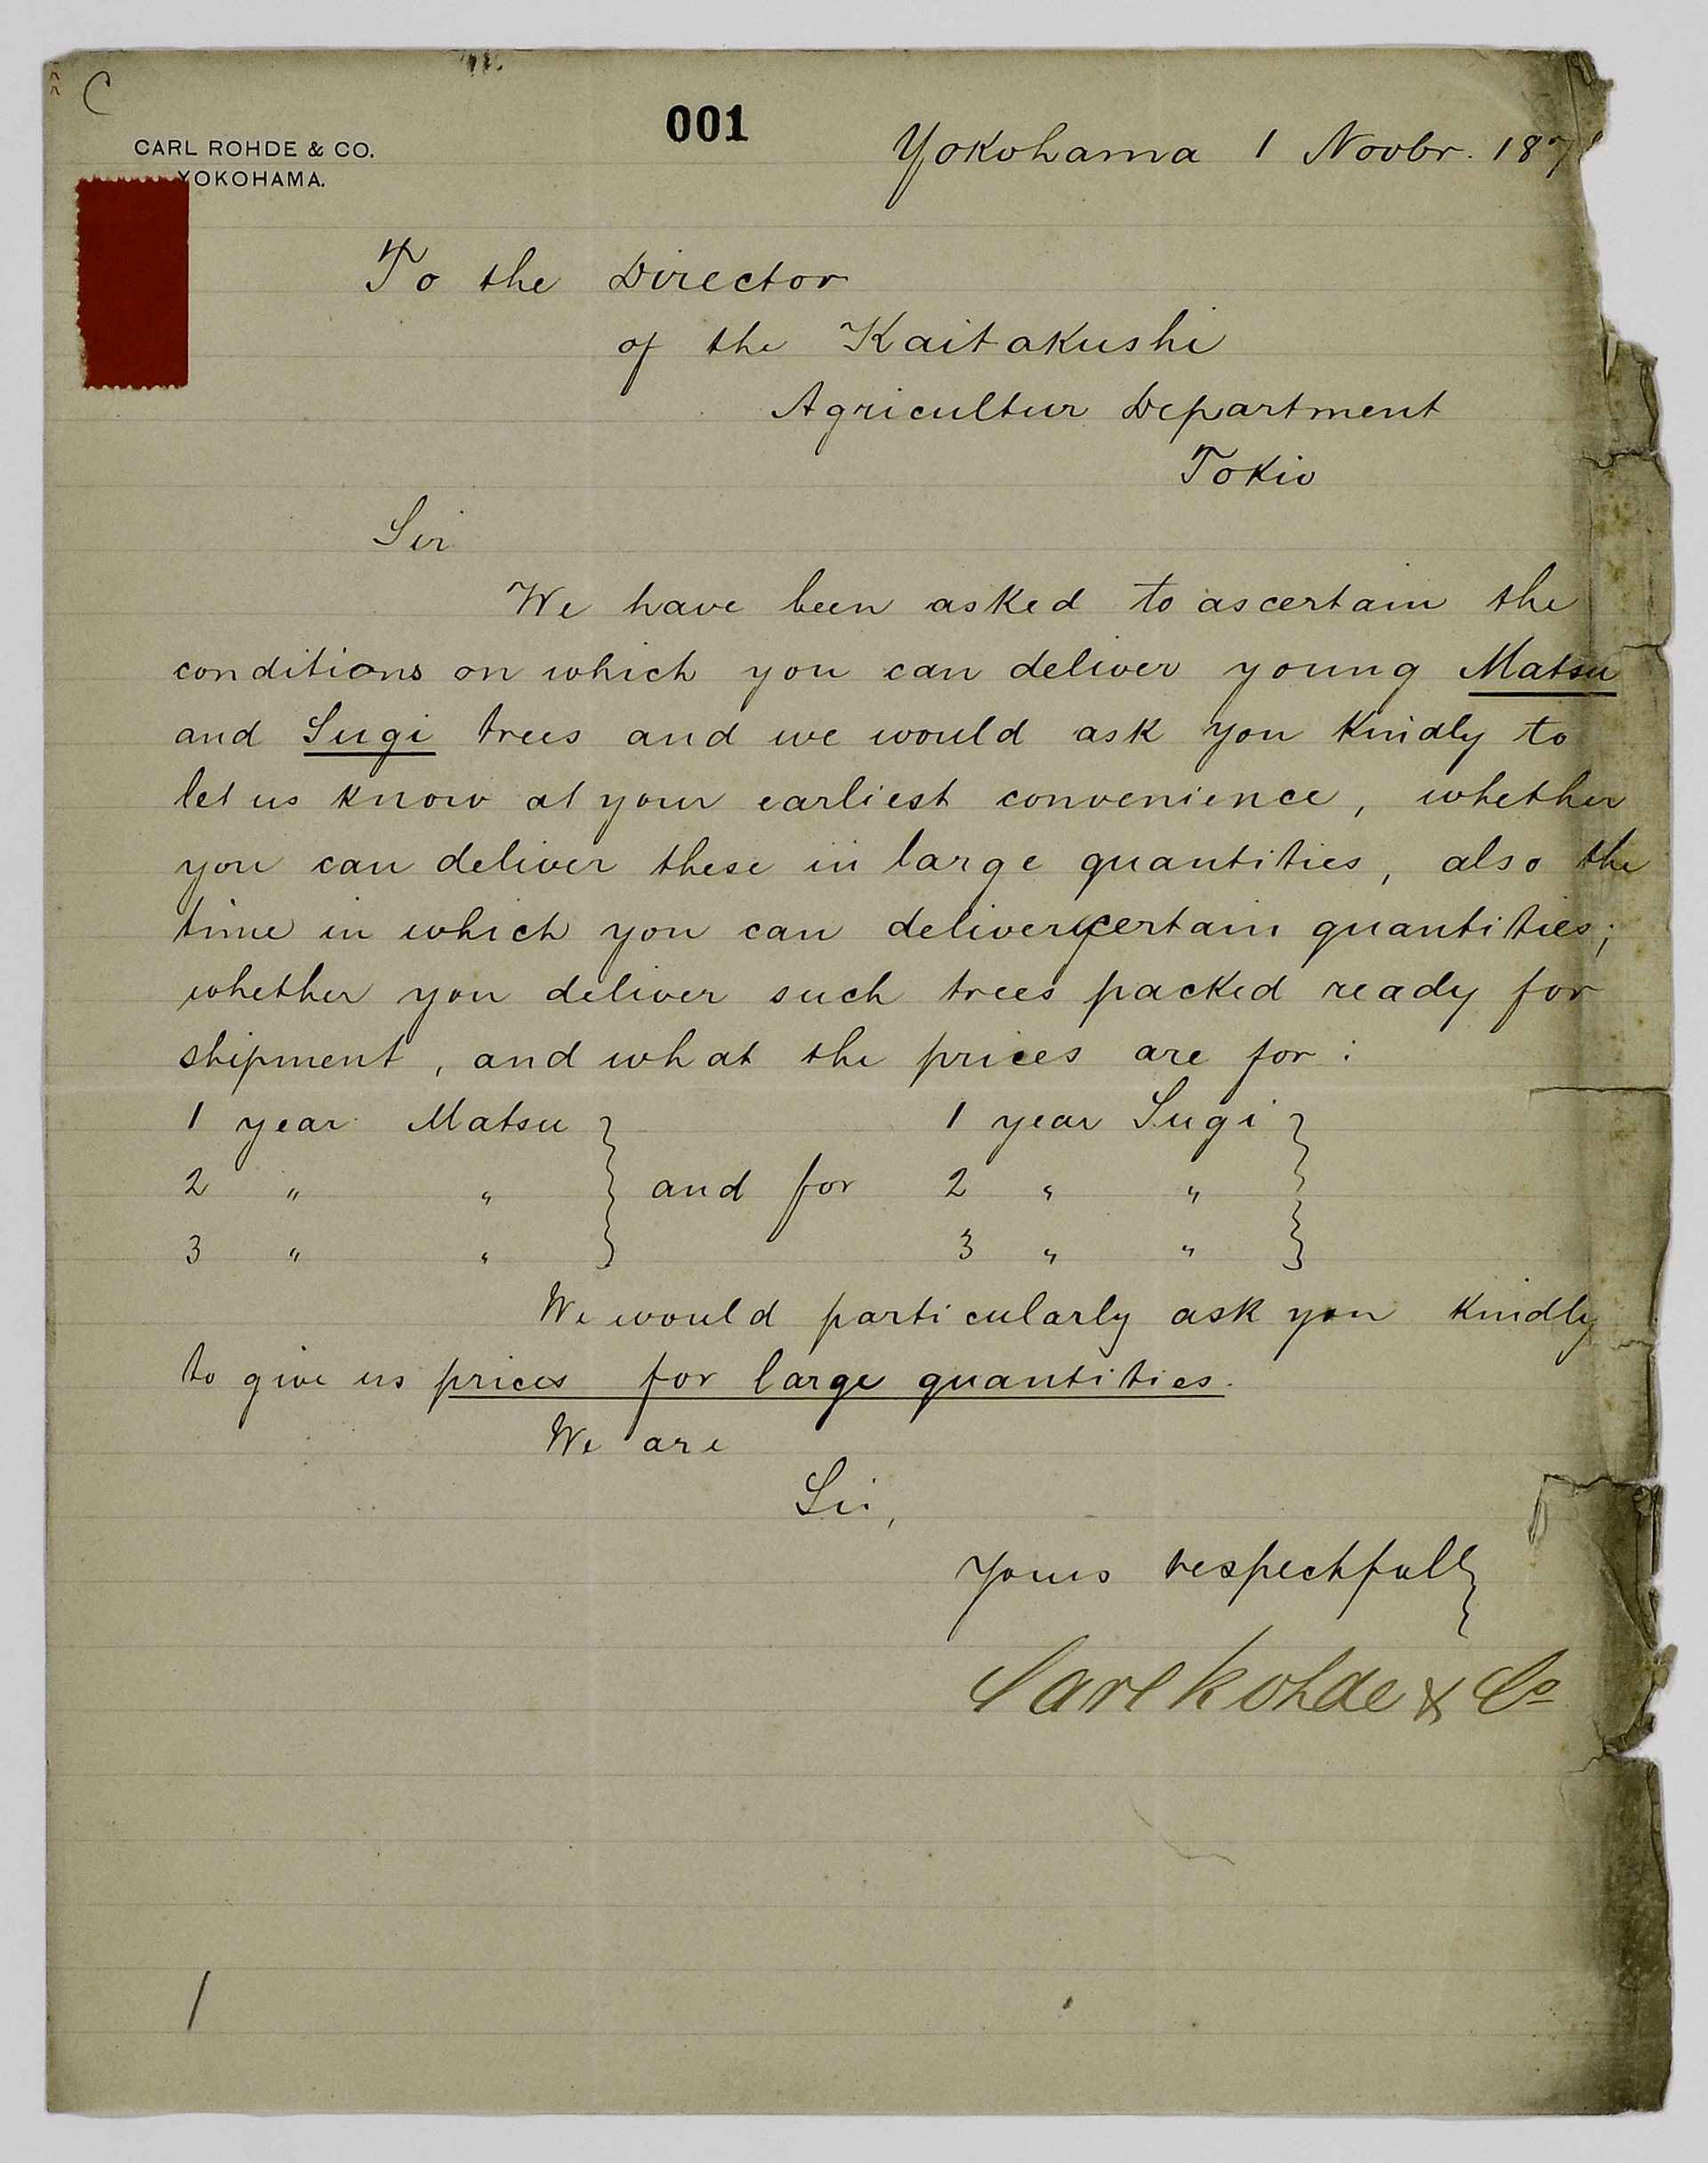 C
001
CARL ROHDE & CO.
YOKOHAMA.
Yokohama 1 Novbr. 187
To the Director
of the Kaitakushi
Agricultur Department
Tokio
Sir
We have been asked to ascertain the
conditions on which you can deliver young Matsu
and Sugi trees and we would ask you kindly to
let us know at your earliest convenience, whether
you can deliver these in large quantities, also the
time in which you can deliver certain quantities;
whether you deliver such trees packed ready for
shipment, and what the prices are for:
1 year Matsu } 1 year Sugi }
2 " " } and for 2 " " }
3 " " } 3 " " }
We would particularly ask you kindly
to give us prices for large quantities.
We are
Sir,
Yours respectfully
Carl Rohde & Co
1